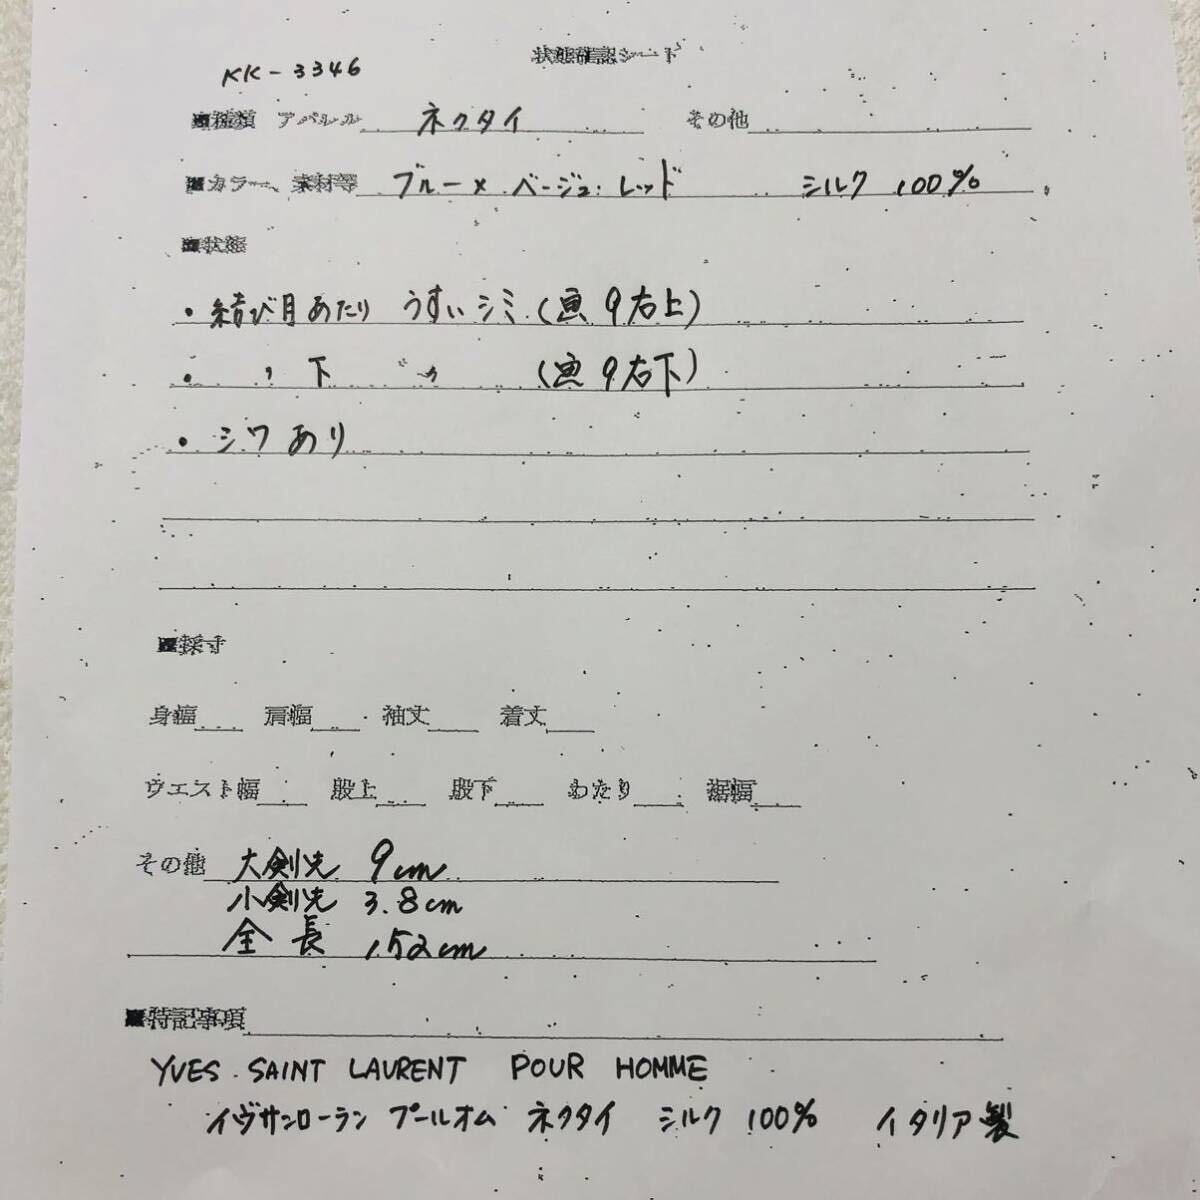 状態確認シート
KK-3346
■種類 アパレル ネクタイ その他
■カラー、素材等 ブルー× ベージュ. レッド シルク 100%
■状態
・結び目あたり うすいシミ (画9右上)
・ 〃 下 〃 (画9右下)
・シワあり
■採寸
身幅 肩幅 袖丈 着丈
ウエスト幅 股上 股下 わたり 裾幅
その他 大剣先 9cm
小剣先 3.8cm
全長 152cm
■特記事項
YVES SAINT LAURENT POUR HOMME
イヴサンローラン プールオム ネクタイ シルク 100% イタリア製